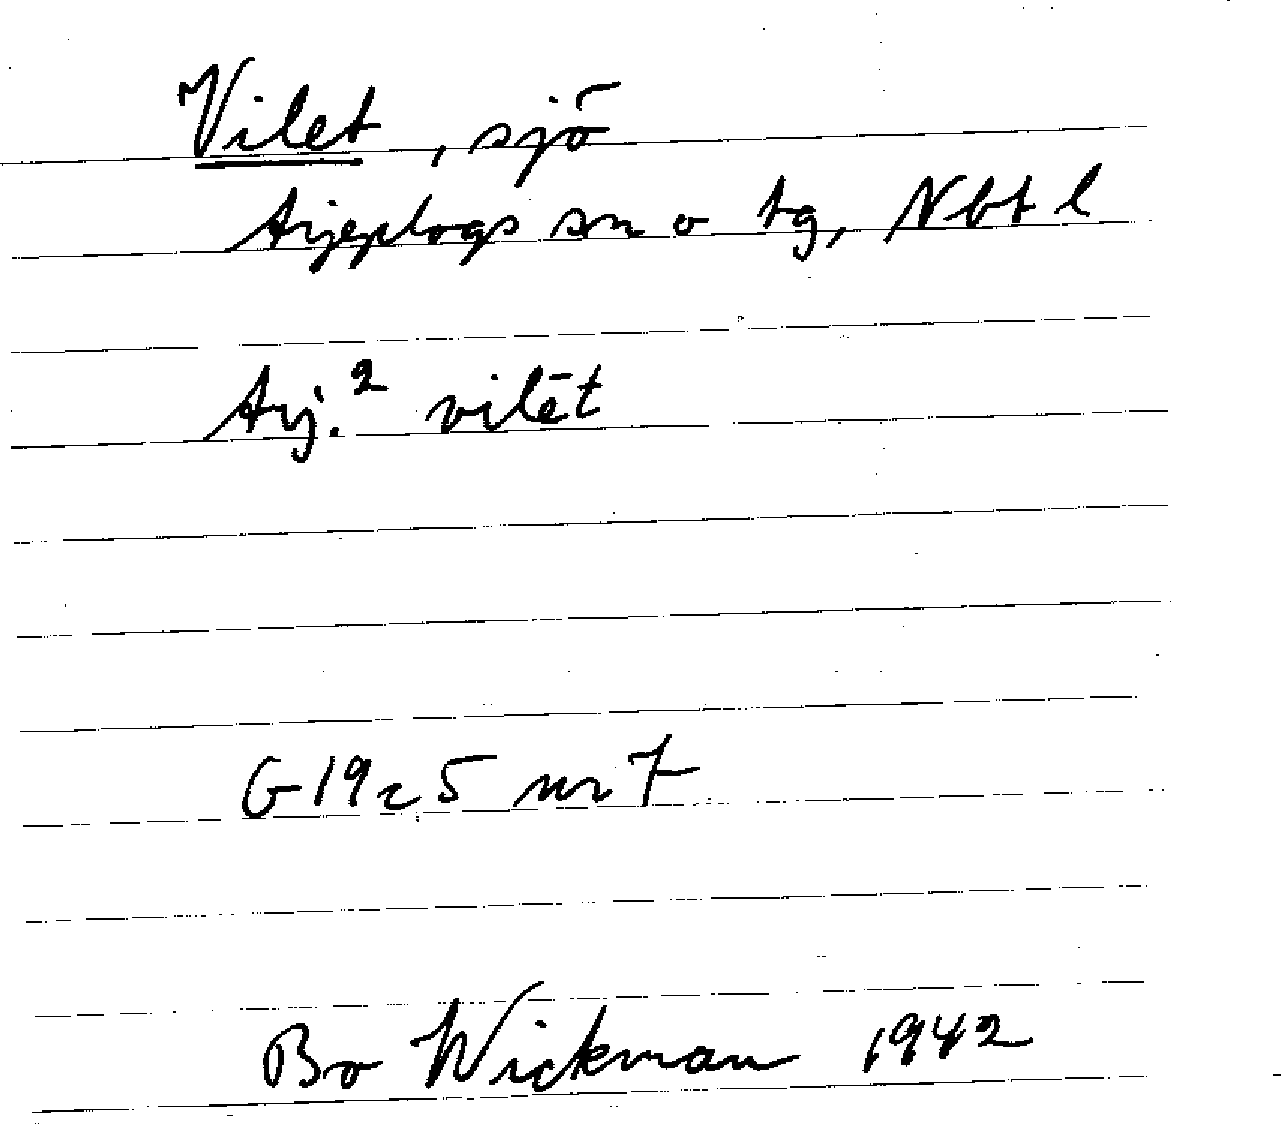 Vilet, sjö
Arjeplogs sn o tg, Nbt l
Arj.² vilēt
G19c5 nr 7
Bo Wickman 1942